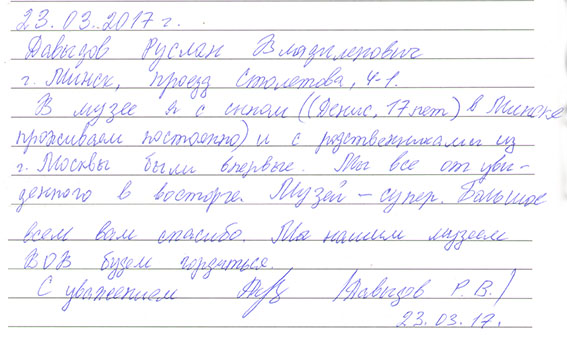 23.03.2017 г.
Давыдов Руслан Владиленович
г. Минск, проезд Столетова, 4-1.
В музее я с сыном ((Денис, 17 лет) в Минске
проживаем постоянно) и с родственниками из
г. Москвы были впервые. Мы все от уви-
денного в восторге. Музей – супер. Большое
всем вам спасибо. Мы нашим музеем
ВОВ будем гордиться.
С уважением /Давыдов Р.В./
23.03.17.